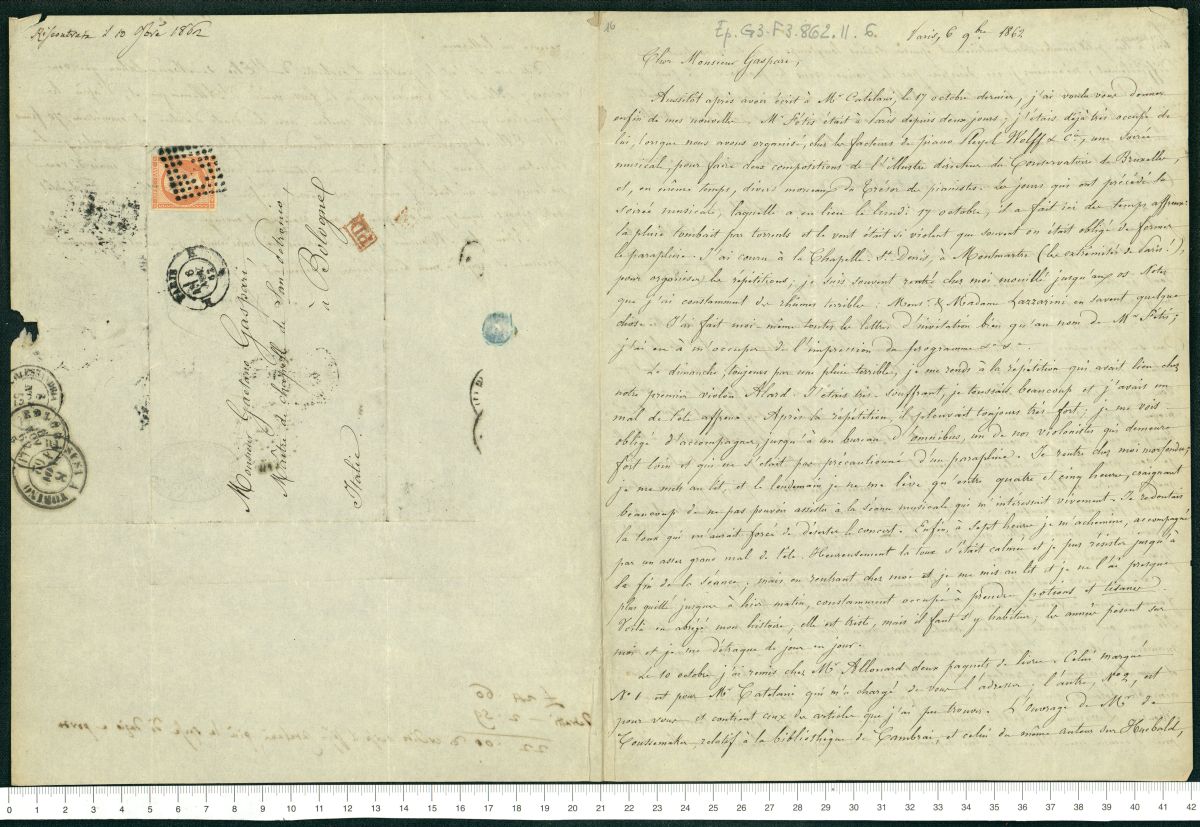 Riscontrata il 10 9bre 1862
Monsieur Gaetano Gaspari,
Maître de chapelle de San Petronio,
à Bologne
Italie.
PD
PARIS
TORINO
16
Ep. G3-F3.862.11.6.
Paris, 6 9bre 1862
Cher Monsieur Gaspari,
Aussitôt après avoir écrit à Mr Catelani, le 17 octobre dernier, j'ai voulu vous donner
enfin de mes nouvelles. Mr Fétis était à Paris depuis deux jours; j'étais déjà très occupé de
lui, lorsque nous avons organisé, chez les facteurs de piano Pleyel Wolff & Cie, une Soirée
musicale, pour faire deux compositions de l'Illustre directeur du Conservatoire de Bruxelles,
et, en même temps, divers morceaux du Trésor des pianistes. Les jours qui ont précédé la
soirée musicale, laquelle a eu lieu le lundi 17 octobre, il a fait ici des temps affreux:
la pluie tombait par torrents et le vent était si violent que souvent on était obligé de fermer
le parapluie. J'ai couru à la Chapelle St Denis, à Montmartre (les extrémités de Paris!),
pour organiser les répétitions; je suis souvent rentré chez moi mouillé jusqu'aux os. Notez
que j'ai constamment des rhumes terribles: Monsr & Madame Lazzarini en savent quelque
chose. J'ai fait moi-même toutes les lettres d'invitation bien qu'au nom de Mr Fétis;
j'ai eu à m'occuper de l'impression du programme &a &a.
Le dimanche, toujours par une pluie terrible, je me rends à la répétition qui avait lieu chez
notre premier violon Alard. J'étais très souffrant, je toussais beaucoup et j'avais un
mal de tête affreux. Après la répétition, il pleuvait toujours très fort; je me vois
obligé d'accompagner, jusqu'à un bureau d'omnibus, un de nos violonistes qui demeure
fort loin et qui ne s'était pas précautionné d'un parapluie. Je rentre chez moi morfondu;
je me mets au lit, et le lendemain je ne me lève qu'entre quatre et cinq heures, craignant
beaucoup de ne pas pouvoir assister à la séance musicale qui m'intéressait vivement. Je redoutais
la toux qui m'aurait forcé de déserter le concert. Enfin, à sept heures je m'achemine, accompagné
par un assez grand mal de tête. Heureusement la toux s'était calmée et je pus résister jusqu'à
la fin de la séance; mais en rentrant chez moi je me mis au lit et je ne l'ai presque
plus quitté jusques à hier matin, constamment occupé à prendre potions et tisanes.
Voilà en abrégé mon histoire; elle est triste, mais il faut s'y habituer; les années pèsent sur
moi et je me détraque de jour en jour.
Le 10 octobre j'ai remis chez Mr Allouard deux paquets de livres. Celui marqué
No 1 est pour Mr Catelani qui m'a chargé de vous l'adresser; l'autre, No 2, est
pour vous et contient ceux des articles que j'ai pu trouver. L'ouvrage de Mr de
Coussemaker, relatif à la bibliothèque de Cambrai, et celui du même auteur sur Hucbald,